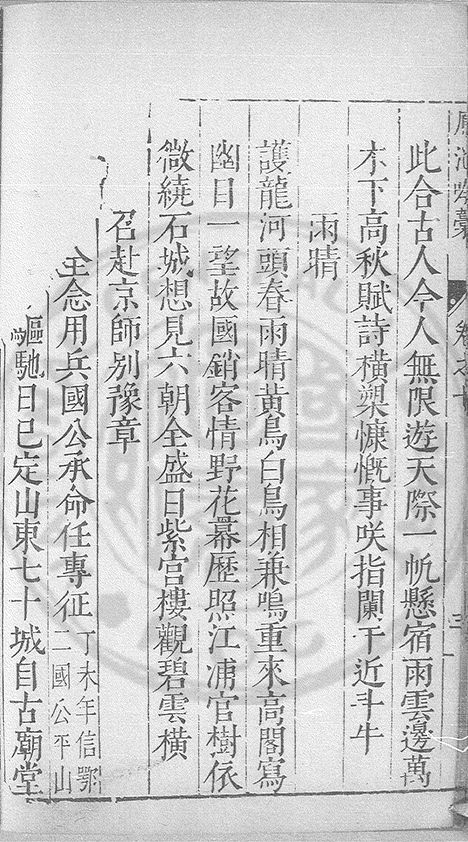 此合古人今人無限遊天際一帆懸宿雨雲邊萬
木下高秋賦詩橫槊慷慨事咲指闌干近斗牛
雨晴
護龍河頭春雨晴黃鳥白鳥相兼鳴重來高閣寫
幽目一望故國銷客情野花羃歷照江浦官樹依
微繞石城想見六朝全盛日紫宮樓觀碧雲橫
召赴京師別豫章
念用兵國公承命任專征丁未年信鄂二國公平山
驅馳日已定山東七十城自古廟堂